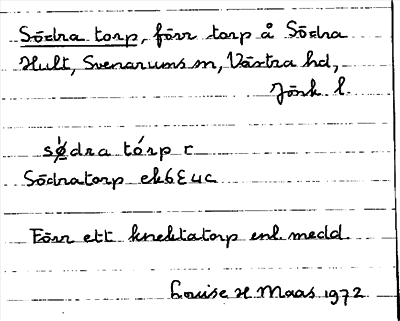 Södra torp, förr torp å Södra
Hult, Svenarums sn, Västra hd,
Jönk l.
södra tórp r
Södratorp ek6E4c
Förr ett knektatorp enl. medd.
Louise H Maas 1972